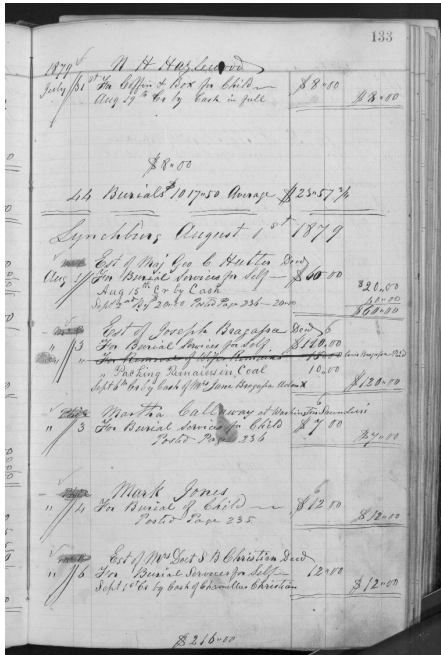 133
1879 N H Hazlewood
July 31st For Coffin & Box for Child $8"00
Aug 19th Cr by Cash in full $8"00
$8"00
44 Burials $1017"50 Average $23"57 3/4
Lynchburg August 1st 1879
Est of Maj Geo C Hutter Decd
Aug 1 For Burial Services for Self $60"00
Aug 15th Cr by Cash $20"00
Sept 2nd By $20"00 Posted Page 236 - 20"00 40"00
$60"00
Est of Joseph Bragassa Decd
" 3 For Burial Services for Self $120"00
" For Removal of Remains 18"00 Bragassa Paid
" Packing Remains in Coal 10"00
Sept 6th Cr by Cash of Mrs Jane Bragassa $120"00
Martha Callaway at Washington Saunders
" 3 For Burial Services for Child $7"00
Posted Page 236 $7"00
Mark Jones
" 4 For Burial of Child $12"00
Posted Page 235 $12"00
Est of Mrs Doct S B Christian Decd
" 6 For Burial Services for Self 12"00
Sept 1st Cr by Cash of Christian $12"00
$216"00